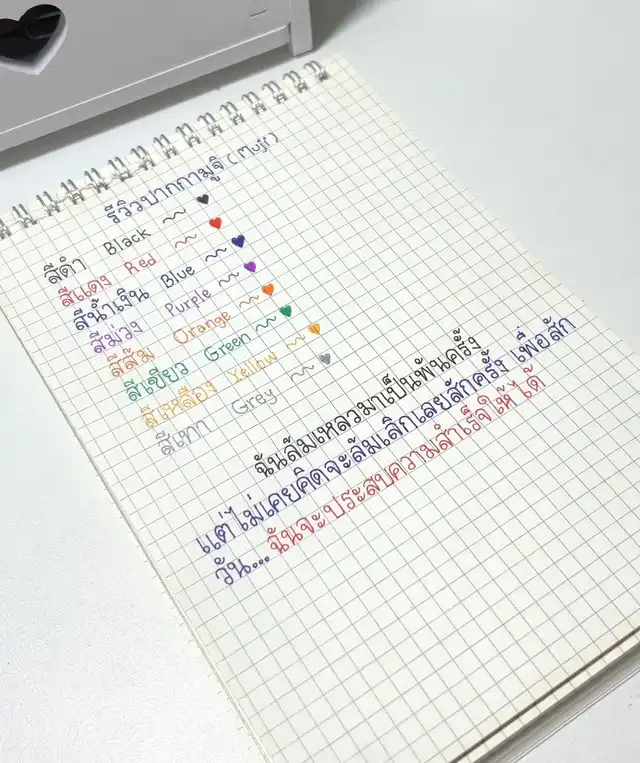 รีวิวปากกามูจิ (Muji)
สีดำ Black
สีแดง Red
สีน้ำเงิน Blue
สีม่วง Purple
สีส้ม Orange
สีเขียว Green
สีเหลือง Yellow
สีเทา Grey
ฉันล้มเหลวมาเป็นพันครั้ง
แต่ไม่เคยคิดจะล้มเลิกเลยสักครั้ง เพื่อสัก
วัน... ฉันจะประสบความสำเร็จให้ได้